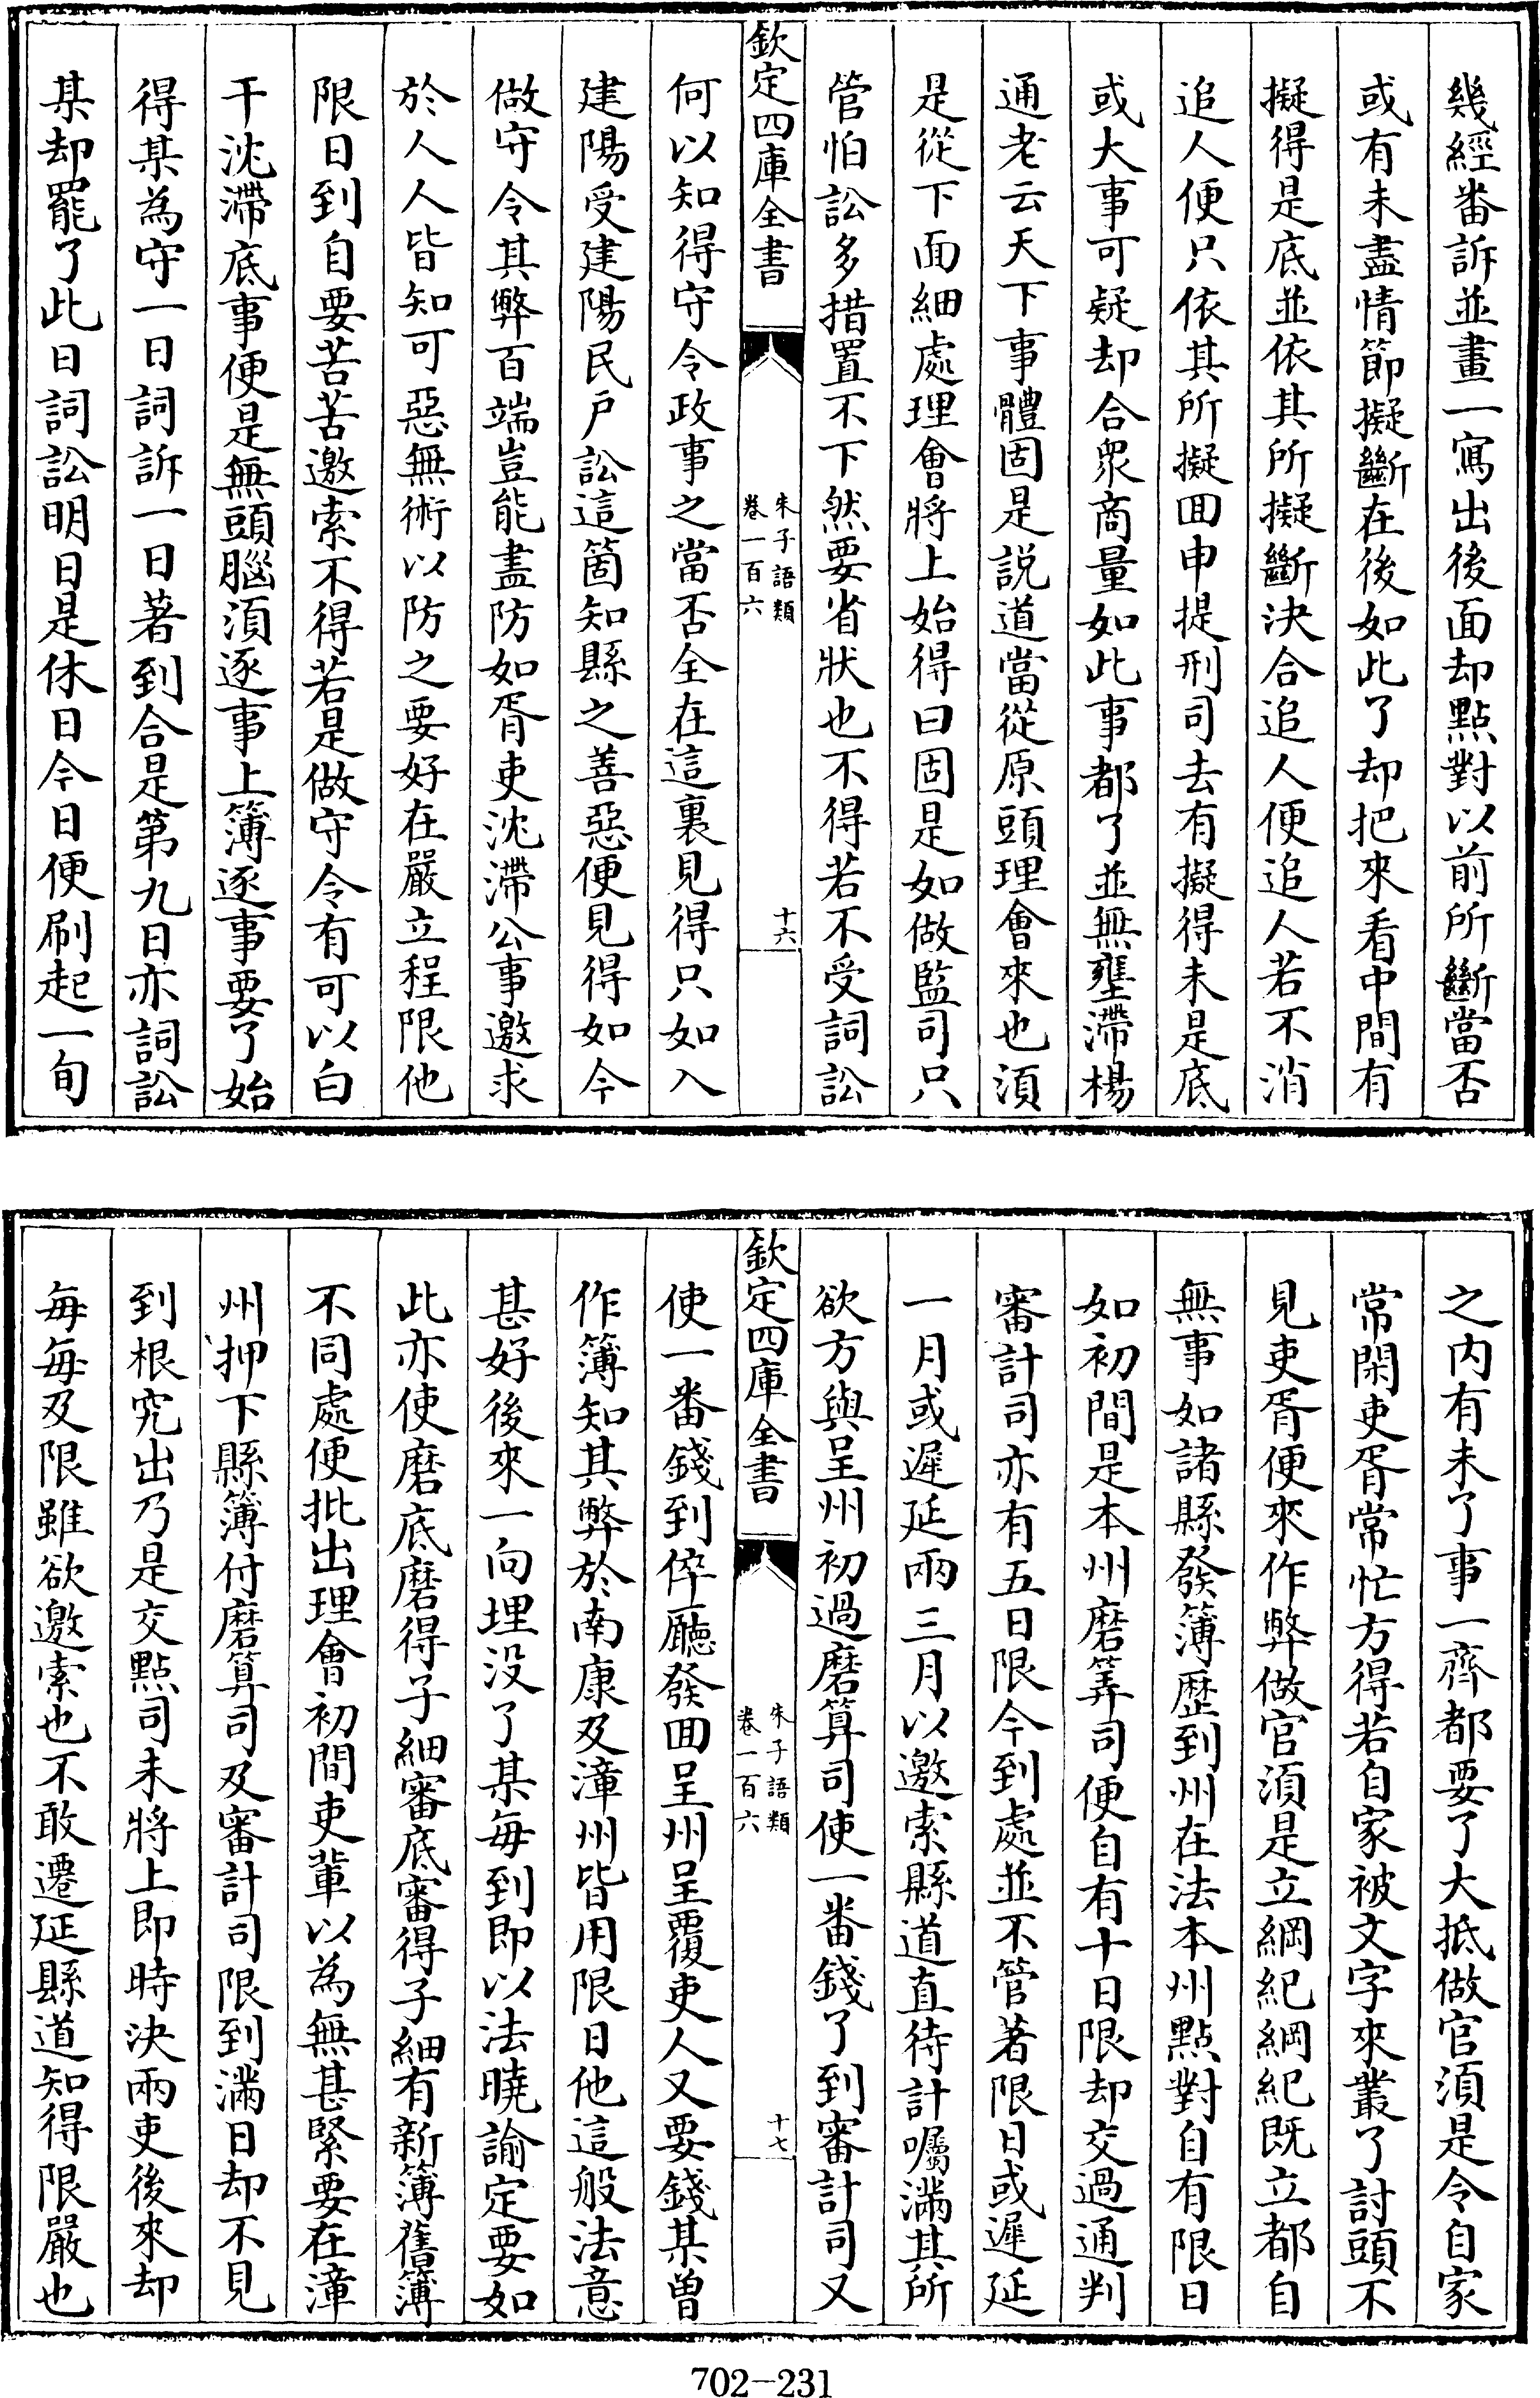 幾經番訴並畫一寫出後面却點對以前所斷當否
或有未盡情節擬斷在後如此了却把來看中間有
擬得是底並依其所擬斷決合追人便追人若不消
追人便只依其所擬回申提刑司去有擬得未是底
或大事可疑却合衆商量如此事都了並無壅滯楊
通老云天下事體固是説道當從原頭理會來也湏
是從下面細處理會將上始得曰固是如做監司只
管怕訟多措置不下然要省狀也不得若不受詞訟
欽定四庫全書
朱子語類
卷一百六
十六
何以知得守令政事之當否全在這裏見得只如入
建陽受建陽民戶訟這箇知縣之善惡便見得如今
做守令其弊百端豈能盡防如胥吏沈滯公事邀求
於人人皆知可惡無術以防之要好在嚴立程限他
限日到自要苦苦邀索不得若是做守令有可以白
干沈滯底事便是無頭腦湏逐事上簿逐事要了始
得某為守一日詞訴一日著到合是第九日亦詞訟
某却罷了此日詞訟明日是休日今日便刷起一旬
之内有未了事一齊都要了大抵做官湏是令自家
常閑吏胥常忙方得若自家被文字來叢了討頭不
見吏胥便來作弊做官湏是立綱紀綱紀既立都自
無事如諸縣發簿歴到州在法本州點對自有限日
如初間是本州磨筭司便自有十日限却交過通判
審計司亦有五日限今到處並不管著限日或遲延
一月或遲延兩三月以邀索縣道直待計囑滿其所
欲方與呈州初過磨算司使一番錢了到審計司又
欽定四庫全書
朱子語類
卷一百六
十七
使一番錢到倅廳發回呈州呈覆吏人又要錢某曽
作簿知其弊於南康及漳州皆用限日他這般法意
甚好後來一向埋没了某每到即以法曉諭定要如
此亦使磨底磨得子細審底審得子細有新簿舊簿
不同處便批出理會初間吏軰以為無甚緊要在漳
州押下縣簿付磨算司及審計司限到滿日却不見
到根究出乃是交點司未將上即時決兩吏後來却
每每及限雖欲邀索也不敢遷延縣道知得限嚴也
702-231